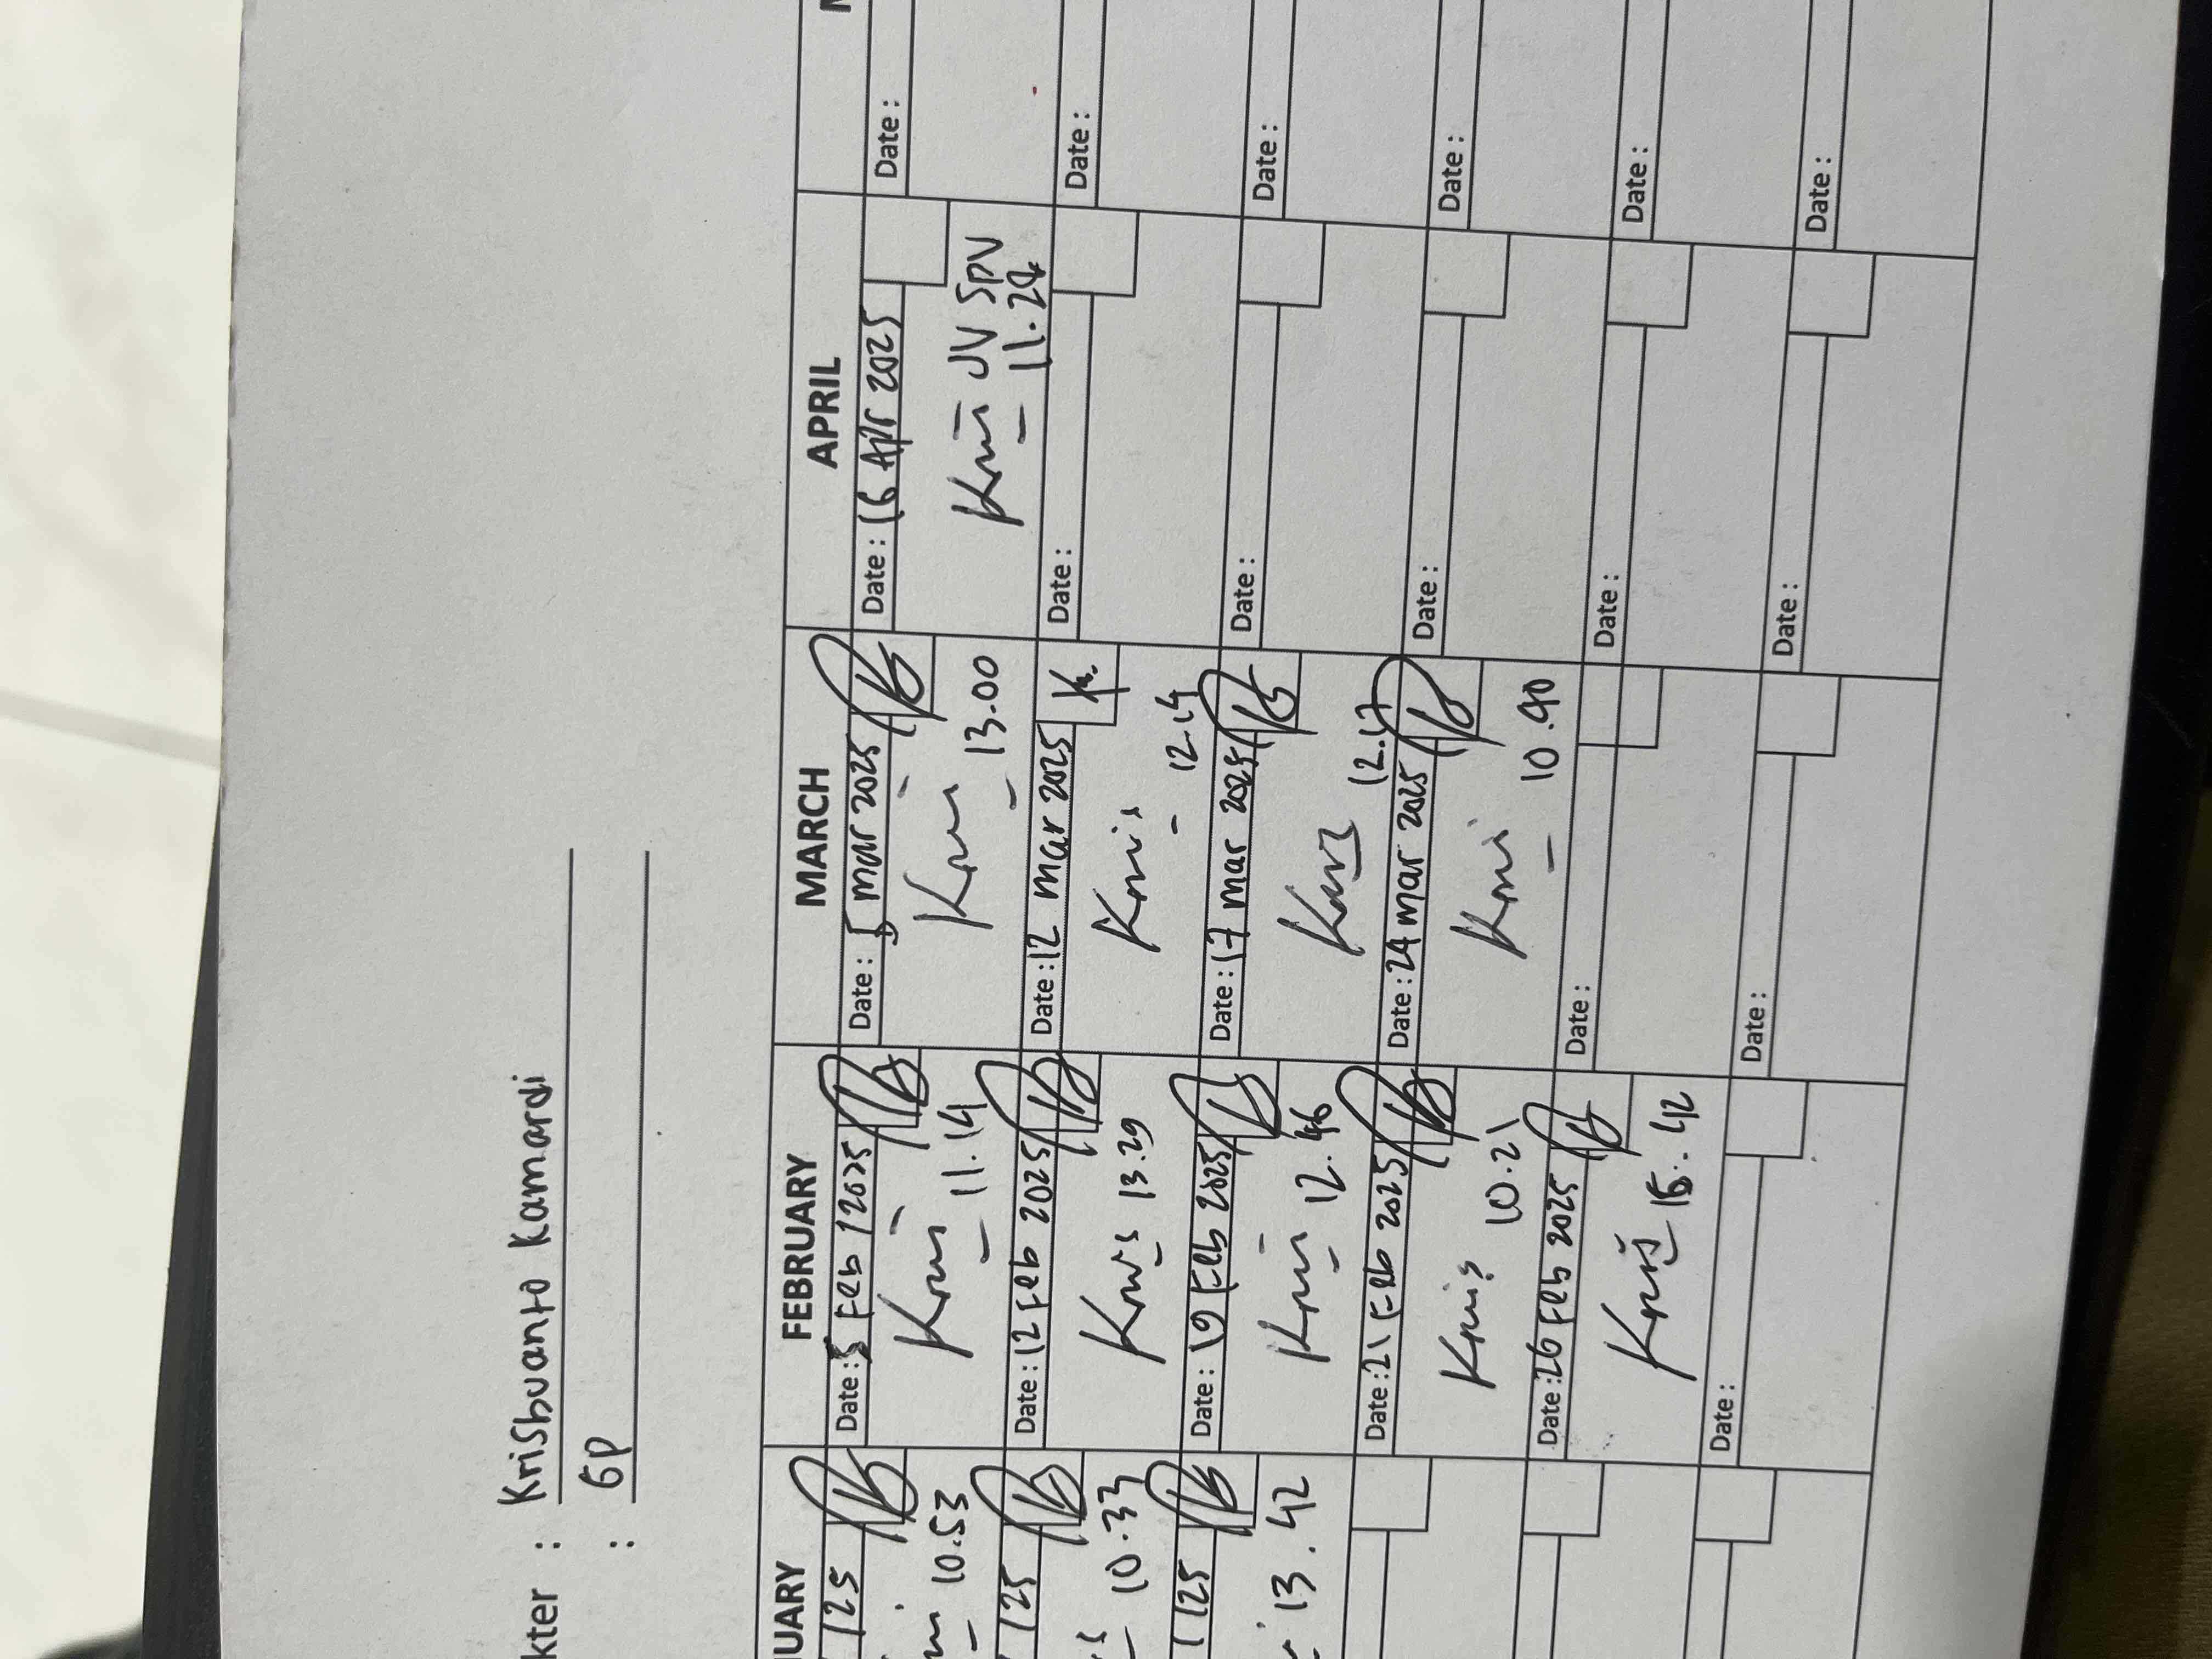 kter : Krisbuanto Kamardi
: GP
UARY FEBRUARY MARCH APRIL
125 Date : 5 Feb 2025 Date : 5 mar 2025 Date : 16 Apr 2025 Date :
10.53 Kris 11.14 Kris 13.00 Kris JV SPV
11.24
125 Date : 12 Feb 2025 Date : 12 mar 2025 Date : Date :
10.33 Kris 13.29 Kris 12.14
125 Date : 19 Feb 2025 Date : 17 mar 2025 Date : Date :
13.42 Kris 12.46 Kris 12.17
Date : 21 Feb 2025 Date : 24 mar 2025 Date : Date :
Kris 10.21 Kris 10.40
Date : 26 Feb 2025 Date : Date : Date :
Kris 15.42
Date : Date : Date : Date :